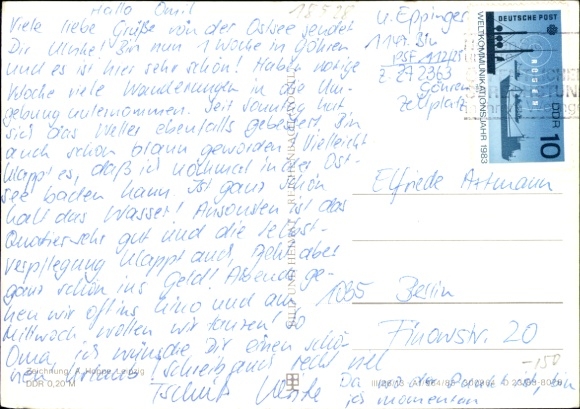 Hallo Omi!
Viele liebe Grüße von der Ostsee sendet
Dir Ulrike! Bin nun 1 Woche in Göhren
und es ist hier sehr schön! Haben vorige
Woche viele Wanderungen in die Um-
gebung unternommen. Seit Sonntag hat
sich das Wetter ebenfalls gebessert. Bin
auch schön braun geworden. Vielleicht
klappt es, daß ich nochmal in der Ost-
see baden kann. Ist ganz schön
kalt das Wasser! Ansonsten ist das
Quartier sehr gut und die Selbst-
verpflegung klappt auch, geht aber
ganz schön ins Geld! Abends ge-
hen wir oft ins Kino und am
Mittwoch wollen wir tanzen! So
Oma, ich wünsche Dir einen schö-
nen Urlaub! Schreib auch recht viel
Tschüß Ulrike
u. Eppinger
1141 Bln
PSF
Z. 27 2363
Göhren
Zeltplatz
DEUTSCHE POST
WELTKOMMUNIKATIONSJAHR 1983
RÜGEN
DDR 10
Elfriede Artmann
1035 Berlin
Finowstr. 20
-150
Da
ich momentan
BILD UND HEIMAT REICHENBACH (VOGTL)
Zeichnung: A. Hoppe, Leipzig
DDR 0,20 M